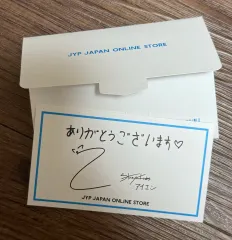 JYP JAPAN ONLINE STORE
ありがとうございます♡
アイエン
JYP JAPAN ONLINE STORE